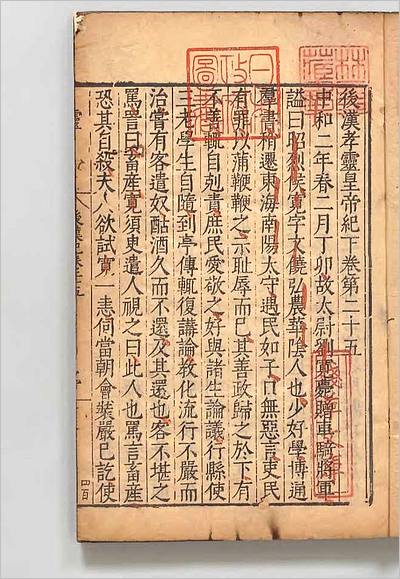 後漢孝靈皇帝紀下卷第二十五
中和二年春二月丁卯故太尉劉寬薨贈車騎將軍
諡曰昭烈侯寬字文饒弘農華陰人也少好學博通
羣書稍遷東海南陽太守遇民如子口無惡言吏民
有罪以蒲鞭鞭之示恥辱而已其善政歸之於下有
不善輒自剋責庶民愛敬之好與諸生論議行縣使
三老學生自隨到亭傳輒復講論教化流行不嚴而
治嘗有客遣奴酤酒久而不還及其還也客不堪之
罵詈曰畜産寬須吏遣人視之曰此人也罵言畜産
恐其自殺夫人欲試寬一恚伺當朝會裝嚴已訖使
四百